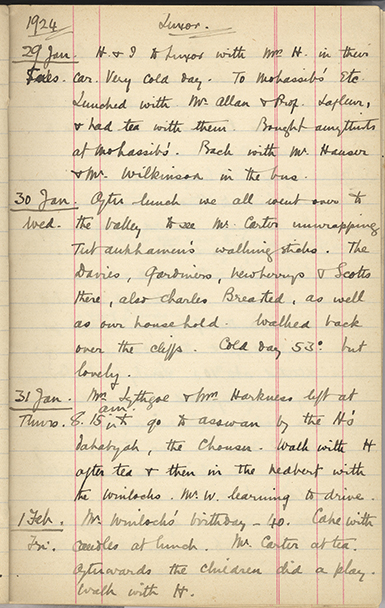 1924 Luxor.
29 Jan. H. & I to Luxor with Mrs H. in their
Tues. car. Very cold day. To Mohassib's Etc.
Lunched with Mr. Allan & Prof. Lafleur,
& had tea with them. Bought amythists
at Mohassib's. Back with Mr. Hauser
& Mr. Wilkinson in the bus.
30 Jan. After lunch we all went over to
Wed. the valley to see Mr. Carter unwrapping
Tut ankhamen's walking sticks. The
Davies, Gardiners, Newberrys & Scotts
there, also Charles Breasted, as well
as our household. Walked back
over the cliffs. Cold day 53° but
lovely.
31 Jan. Mr. Lythgoe & Mrs Harkness left at
Thurs. 8.15 am. to go to Asswan by the H's
dahabyah, the Chonsu. Walk with H
after tea & then in the
with
the Winlocks. Mr. W. learning to drive.
1 Feb. Mr. Winlock's birthday - 40. Cake with
Fri. candles at lunch. Mr. Carter at tea.
Afterwards the children did a play.
Walk with H.